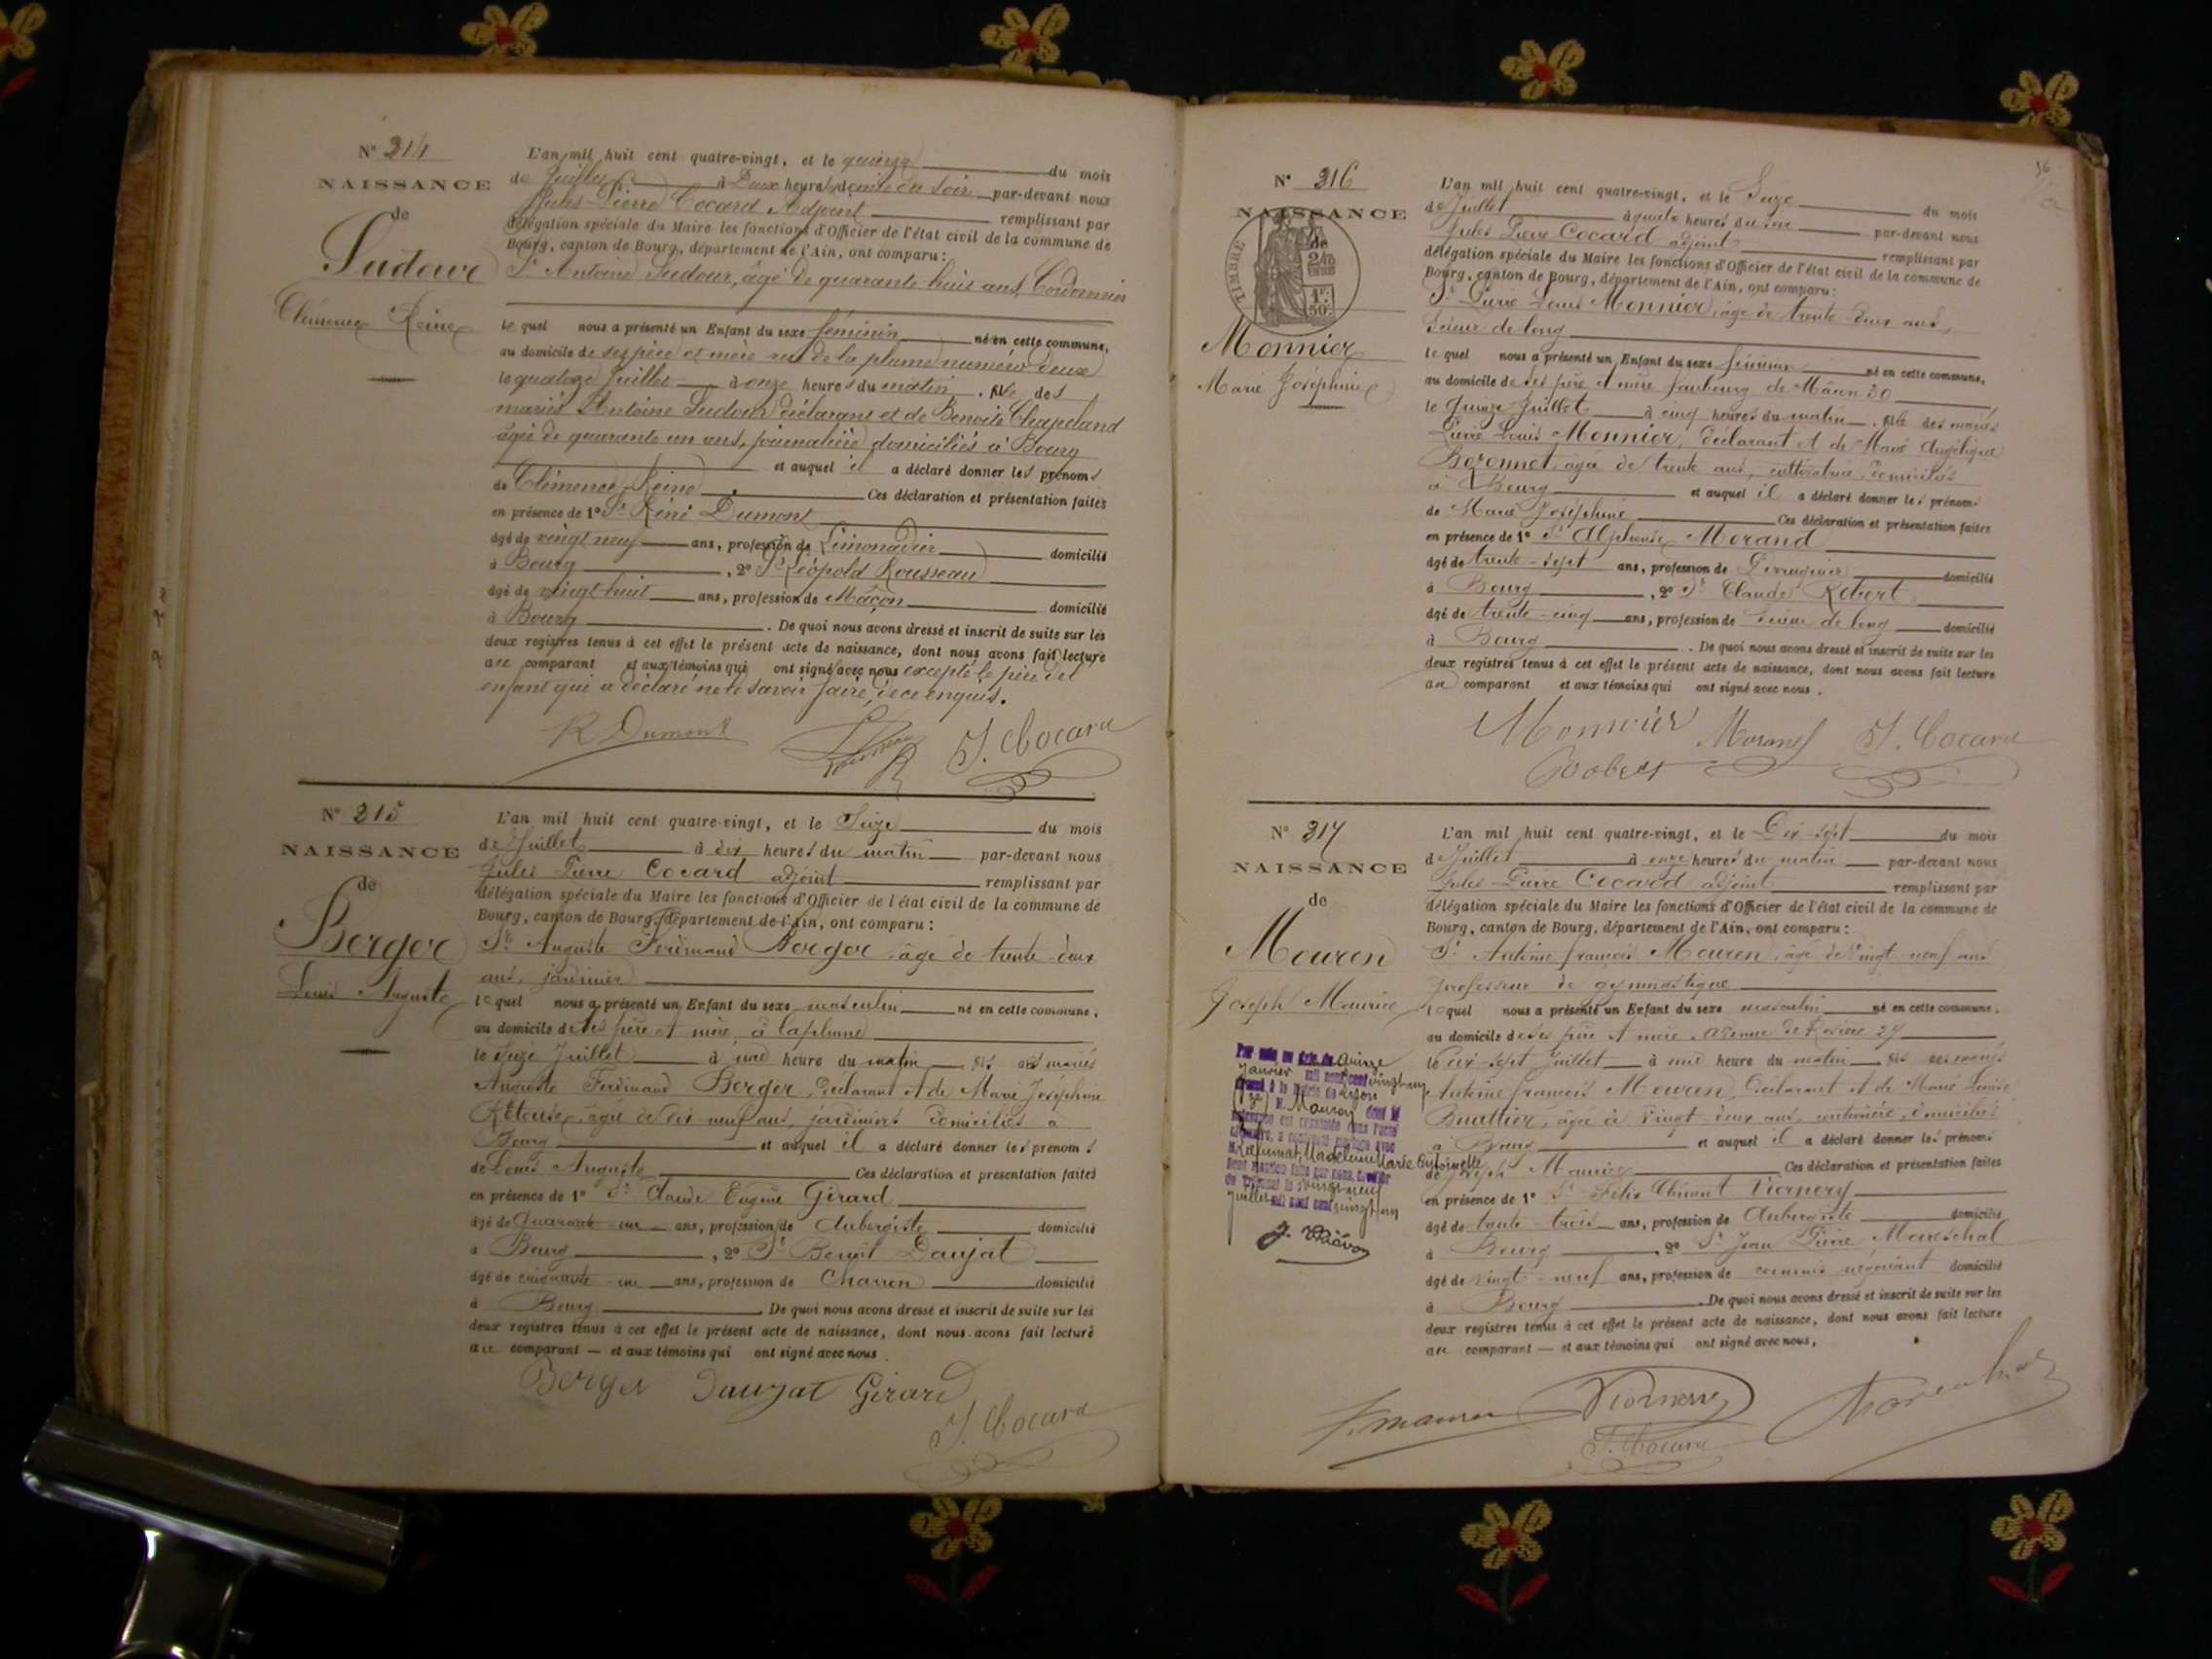 N° 214
NAISSANCE
de
Sudour
Clémence Reine
L'an mil huit cent quatre-vingt, et le quinze du mois
de Juillet à Deux heures demie du soir par-devant nous
Jules Pierre Cocard Adjoint remplissant par
délégation spéciale du Maire les fonctions d'Officier de l'état civil de la commune de
Bourg, canton de Bourg, département de l'Ain, ont comparu :
Sr Antoine Sudour, âgé de quarante huit ans, Cordonnier
lequel nous a présenté un Enfant du sexe féminin né en cette commune,
au domicile de ses père et mère rue de la plume numéro deux
le quatorze Juillet à onze heures du matin, fille des
mariés Antoine Sudour déclarant et de Benoite Chapeland
âgée de quarante un ans, journalière domiciliés à Bourg
et auquel il a déclaré donner les prénoms
de Clémence Reine Ces déclaration et présentation faites
en présence de 1° Sr Réné Dumont
âgé de vingt neuf ans, profession de Limonadier domicilié
à Bourg, 2° Sr Léopold Rousseau
âgé de vingt huit ans, profession de Mâçon domicilié
à Bourg. De quoi nous avons dressé et inscrit de suite sur les
deux registres tenus à cet effet le présent acte de naissance, dont nous avons fait lecture
au comparant et aux témoins qui ont signé avec nous excepté le père de l'
enfant qui a déclaré ne le savoir faire, de ce enquis.
R Dumont J. Cocard
N° 215
NAISSANCE
de
Berger
Louis Auguste
L'an mil huit cent quatre-vingt, et le Seize du mois
de Juillet à dix heures du matin par-devant nous
Jules Pierre Cocard adjoint remplissant par
délégation spéciale du Maire les fonctions d'Officier de l'état civil de la commune de
Bourg, canton de Bourg, département de l'Ain, ont comparu :
Sr Auguste Ferdinand Berger, âgé de trente-deux
ans, jardinier
lequel nous a présenté un Enfant du sexe masculin né en cette commune,
au domicile de ses père et mère, à la plume
le Seize Juillet à une heure du matin, fils des mariés
Auguste Ferdinand Berger, déclarant et de Marie Joséphine
âgée de dix neuf ans, jardiniers domiciliés à
Bourg et auquel il a déclaré donner les prénoms
de Louis Auguste Ces déclaration et présentation faites
en présence de 1° Sr Claude Eugène Girard
âgé de quarante-un ans, profession de Aubergiste domicilié
à Bourg, 2° Sr Benoit Daujat
âgé de cinquante-un ans, profession de Charron domicilié
à Bourg. De quoi nous avons dressé et inscrit de suite sur les
deux registres tenus à cet effet le présent acte de naissance, dont nous avons fait lecture
au comparant — et aux témoins qui ont signé avec nous.
Berger Daujat Girard
J. Cocard
36
N° 216
NAISSANCE
de
TIMBRE
1F. 50c
Monnier
Marie Joséphine
L'an mil huit cent quatre-vingt, et le Seize du mois
de Juillet à quatre heures du soir par-devant nous
Jules Pierre Cocard adjoint remplissant par
délégation spéciale du Maire les fonctions d'Officier de l'état civil de la commune de
Bourg, canton de Bourg, département de l'Ain, ont comparu :
Sr Pierre Louis Monnier, âgé de trente-deux ans,
Scieur de long
lequel nous a présenté un Enfant du sexe féminin né en cette commune,
au domicile de ses père et mère faubourg de Mâcon 30
le Quinze Juillet à cinq heures du matin, fille des mariés
Pierre Louis Monnier, déclarant et de Marie Angélique
âgée de trente ans, cultivatrice, domiciliés
à Bourg et auquel il a déclaré donner les prénoms
de Marie Joséphine Ces déclaration et présentation faites
en présence de 1° Sr Alphonse Morand
âgé de trente-sept ans, profession de Perruquier domicilié
à Bourg, 2° Sr Claude Robert
âgé de trente-cinq ans, profession de Scieur de long domicilié
à Bourg. De quoi nous avons dressé et inscrit de suite sur les
deux registres tenus à cet effet le présent acte de naissance, dont nous avons fait lecture
au comparant et aux témoins qui ont signé avec nous.
Monnier Morand J. Cocard
Robert
N° 217
NAISSANCE
de
Mouren
Joseph Maurice
L'an mil huit cent quatre-vingt, et le Dix-sept du mois
de Juillet à onze heures du matin par-devant nous
Jules Pierre Cocard adjoint remplissant par
délégation spéciale du Maire les fonctions d'Officier de l'état civil de la commune de
Bourg, canton de Bourg, département de l'Ain, ont comparu :
Sr Antoine françois Mouren, âgé de vingt-neuf ans
professeur de gymnastique
lequel nous a présenté un Enfant du sexe masculin né en cette commune,
au domicile de ses père et mère avenue de Rosière 27
le dix-sept Juillet à une heure du matin fils des mariés
Antoine françois Mouren, déclarant et de Marie Louise
âgée de vingt-deux ans, couturière, domiciliés
à Bourg et auquel il a déclaré donner les prénoms
de Joseph Maurice Ces déclaration et présentation faites
en présence de 1° Sr Félix Clément Viornery
âgé de trente-trois ans, profession de Aubergiste domicilié
à Bourg, 2° Sr Jean Pierre Mareschal
âgé de vingt-neuf ans, profession de commis négociant domicilié
à Bourg. De quoi nous avons dressé et inscrit de suite sur les
deux registres tenus à cet effet le présent acte de naissance, dont nous avons fait lecture
au comparant — et aux témoins qui ont signé avec nous.
Par acte en date du quinze
janvier mil neuf cent vingt un
dressé à la mairie de Lyon
M. Mouren dont la
naissance est constatée dans l'acte
ci-contre, a contracté mariage avec
Madeleine Marie Antoinette
vingt neuf
juillet mil neuf cent vingt un
J. Cocard